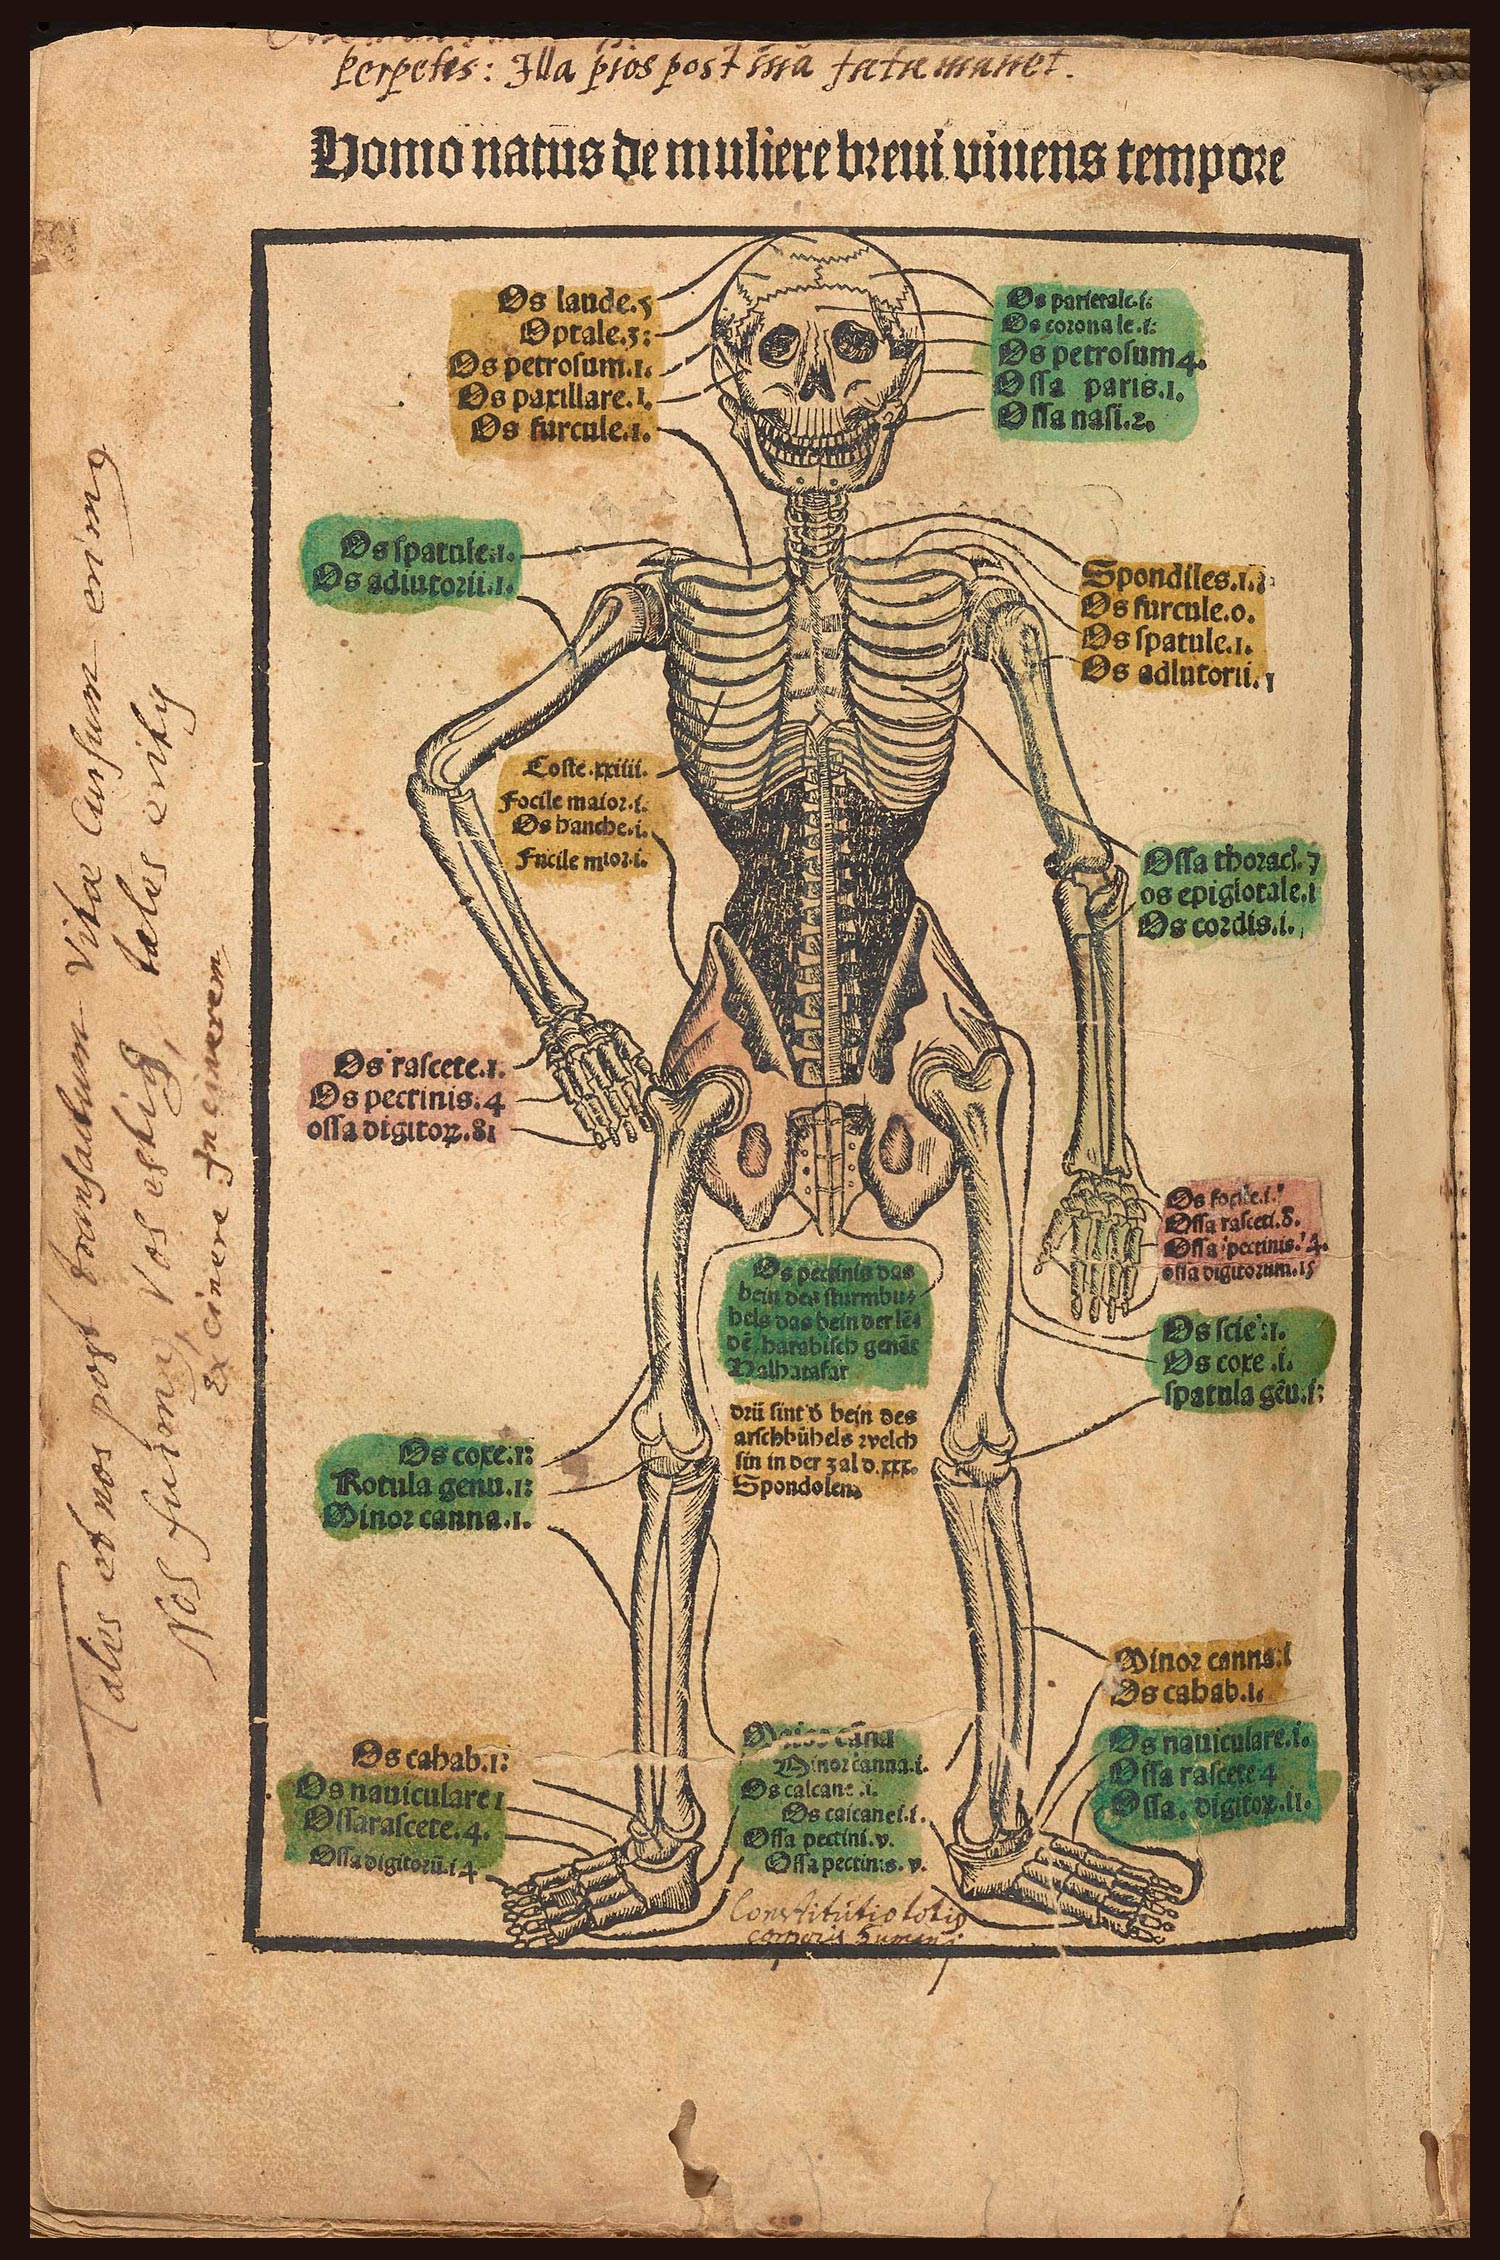 perpetes: Illa pios post sua fata manet.
Homo natus de muliere breui viuens tempore
Os laude.5
Optale.3:
Os petrosum.1.
Os paxillare.1.
Os furcule.1.
Os parietale.i:
Os coronale.i:
Os petrosum4.
Ossa paris.1.
Ossa nasi.2.
Os spatule.1.
Os adiutorii.1.
Spondiles.1.
Os furcule.o.
Os spatule.1.
Os adiutorii.1
Coste.xxiiii.
Focile maior.i.
Os hanche.i.
Fucile mior.i.
Ossa thoraci.7
os epiglotale.1
Os cordis.i.
Os rascete.1.
Os pectinis.4
ossa digitoꝝ.81
Os focile.i.
Ossa rasceti.8.
Ossa pectinis.4.
ossa digitorum.15
Os pectinis das
bein des sturmbu⸗
hels das bein der lē⸗
dē, harabisch genāt
Halhatafat
Os scie:1.
Os coxe.i.
spatula gēu.i:
drü sint ð bein des
arschbühels welch
sin in der zal d.xxx.
Spondolen.
Os coxe.1:
Rotula genu.1:
Minor canna.1.
Minor canna:1
Os cahab.1.
Os cahab.1:
Os nauiculare1
Ossarascete.4.
Ossadigitorū.14
canna
Minor canna.i.
Os calcane.i.
Os calcanei.i.
Ossa pectini.v.
Ossa pectinis.v.
Os nauiculare.i.
Ossa rascete4
Ossa. digitoꝝ.ii.
Constitutio totis
corporis humani
Talis et nos post transactum vitæ cursum enim9
Nos fuim9, Vos estis, talis eritis
Ex cinere In cinerem